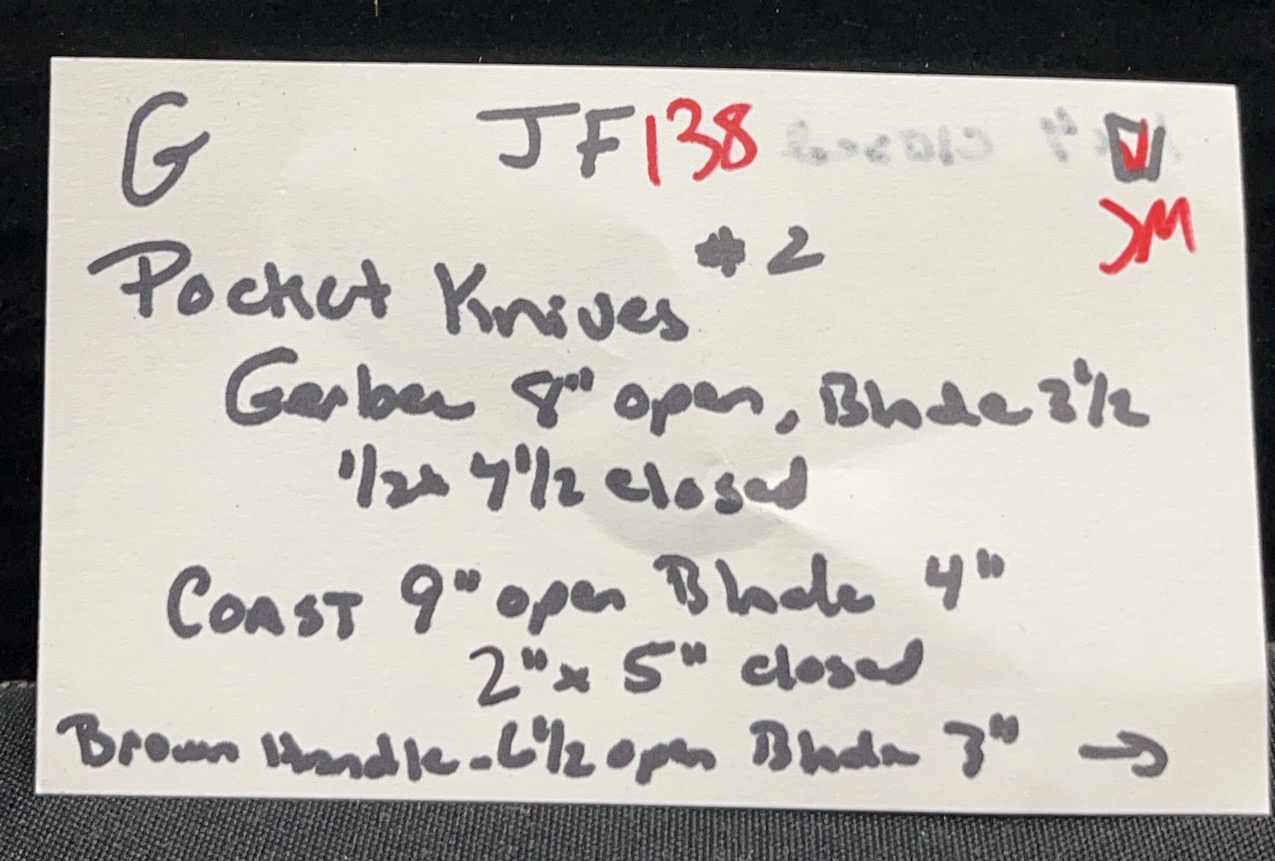 G JF138
JM
#2
Pocket Knives
Gerber 8" open, Blade 3 1/2
1/2 x 4 1/2 closed
COAST 9" open Blade 4"
2" x 5" closed
Brown Handle - 6 1/2 open Blade 3" →